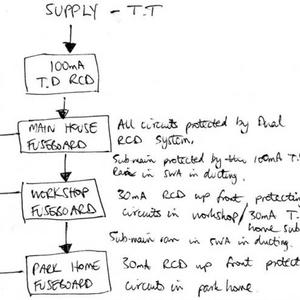 SUPPLY - T.T
100mA
T.D RCD
MAIN HOUSE
FUSEBOARD
All circuits protected by Dual
RCD System.
Sub-main protected by the 100mA T.D
Ran in SWA in ducting.
WORKSHOP
FUSEBOARD
30mA RCD up front, protecting
circuits in workshop / 30mA T.
home sub
Sub-main ran in SWA in ducting.
PARK HOME
FUSEBOARD
30mA RCD up front protect
circuits in park home.